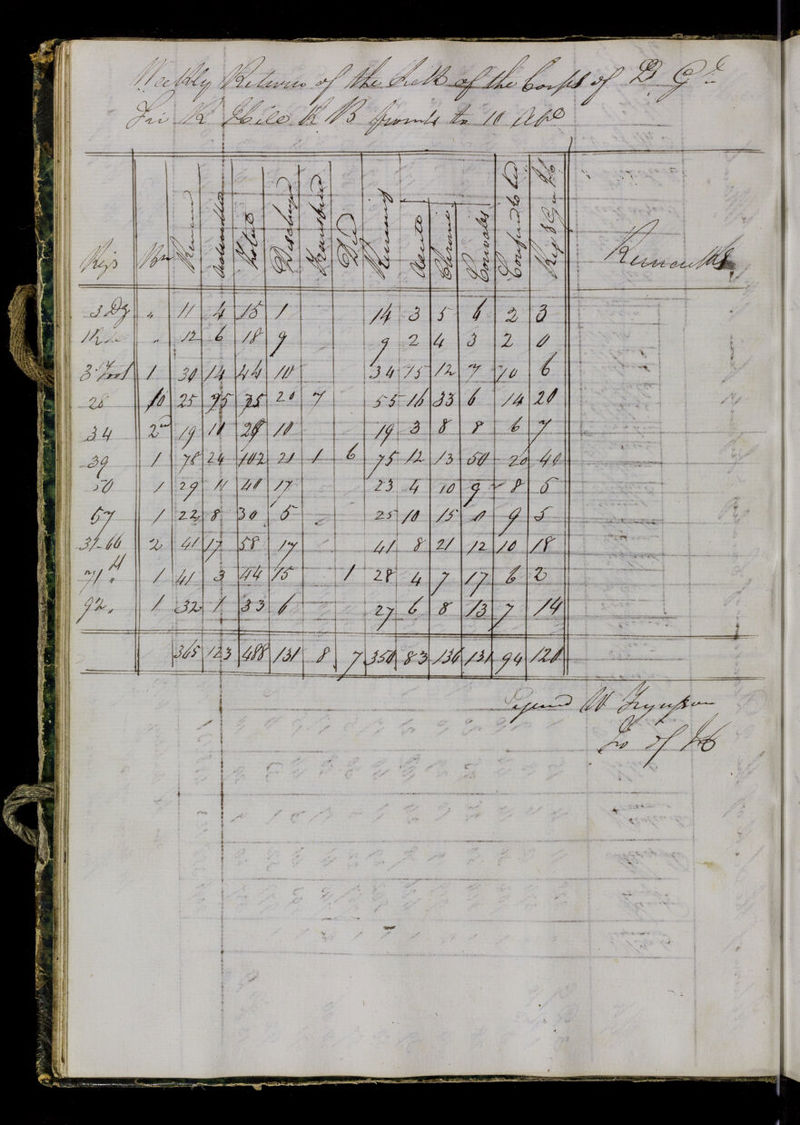 Weekly Return of the Sick of the Corps of
Sir R Hill K B from to 10
Regs Bn Remained Admitted Total Discharged Transferred Died Remaining Acute Chronic Convales Confined to bed Remarks
3 Dg " 11 4 15 1 14 3 5 6 2 3
" 12 6 18 9 9 2 4 3 2 0
3 Foot 1 30 14 44 10 34 15 12 7 10 6
28 25 20 7 55 16 33 6 14 20
34 2nd 19 10 29 10 19 3 8 8 6 7
39 1 78 24 102 21 1 6 75 12 13 50 20 40
50 1 29 11 40 17 23 4 10 9 8 5
57 1 22 8 30 5 25 10 15 0 9 5
31-66 2 41 17 58 17 41 8 21 12 10 18
71 " 1 41 3 44 15 1 28 4 7 17 6 2
92 " 1 32 1 33 6 27 6 8 13 7 14
365 123 488 131 8 7 350 83 136 131 94 120
Signed W Fergusson
of